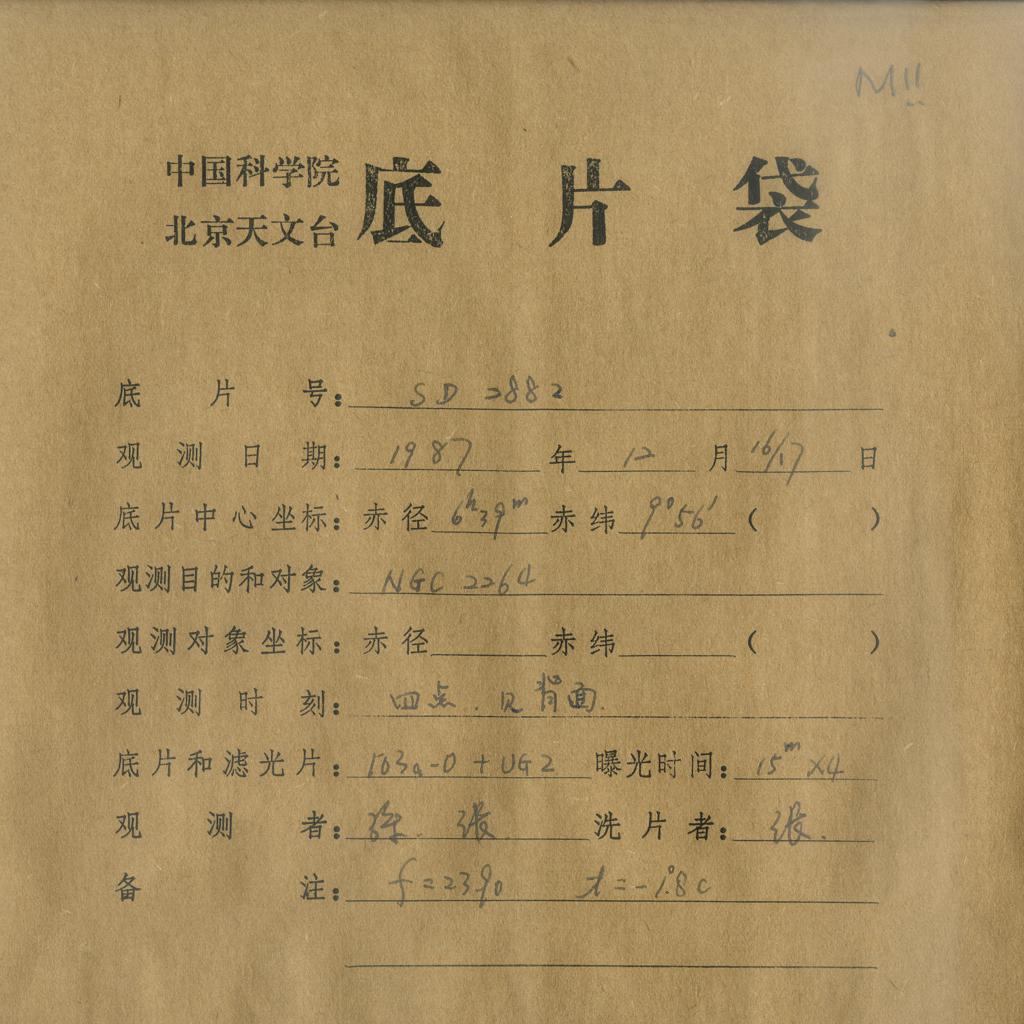 M11
中国科学院
北京天文台
底片袋
底片号: SD 2882
观测日期: 1987 年 12 月 16/17 日
底片中心坐标: 赤径 6h39m 赤纬 9°56′ ( )
观测目的和对象: NGC 2264
观测对象坐标: 赤径 赤纬 ( )
观测时刻: 四点. 见背面.
底片和滤光片: 103a-O + UG2 曝光时间: 15m ×4
观测者: 张 洗片者: 张.
备注: f=2390 t=-1.8c